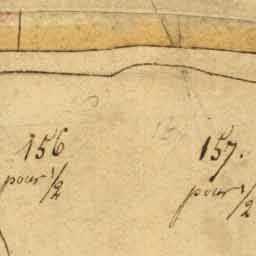 156
pour 1/2
157.
pour 1/2